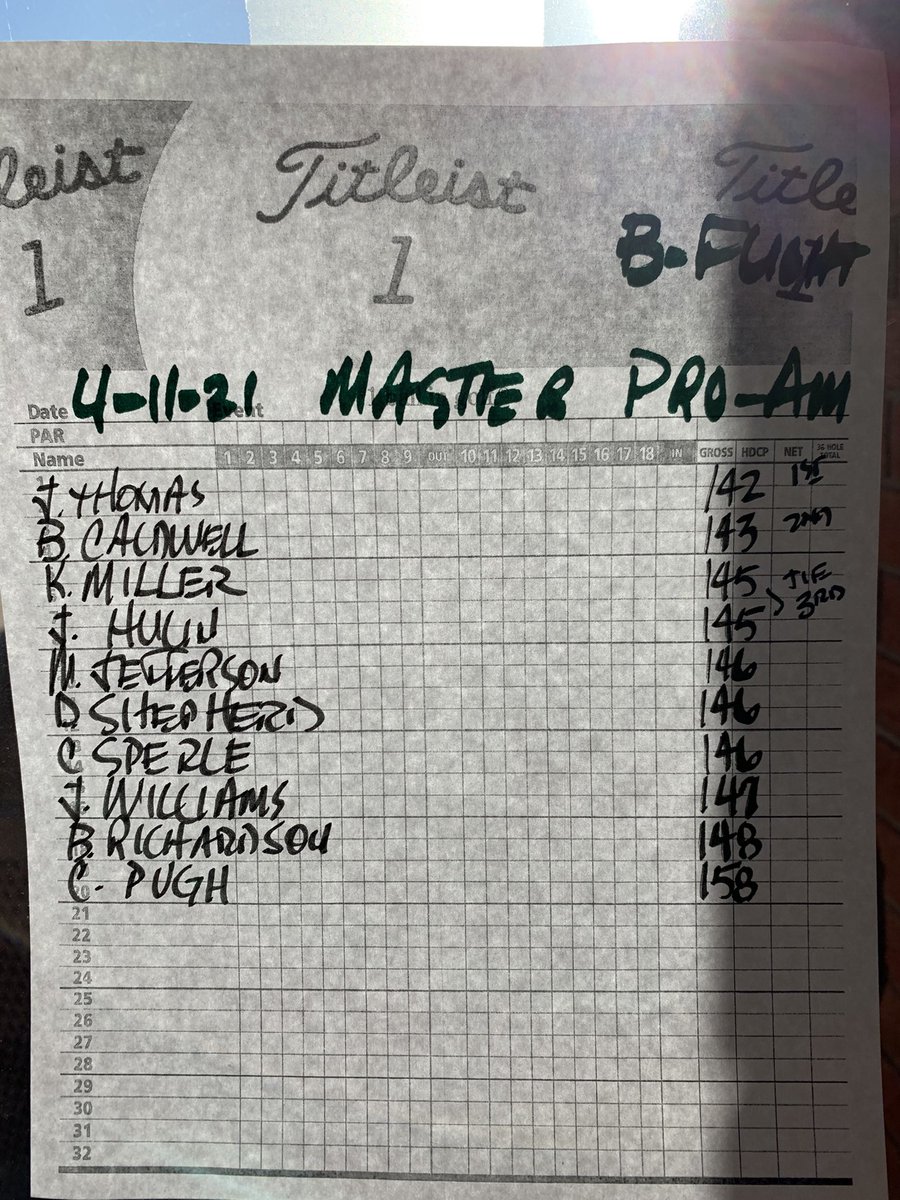 leist Titleist Title
1 1
B-FLIGHT
Date 4-11-21 Event MASTER PRO-AM
PAR
Name 1 2 3 4 5 6 7 8 9 OUT 10 11 12 13 14 15 16 17 18 IN GROSS HDCP NET 36 HOLE TOTAL
J. THOMAS 142 1st
B. CALDWELL 143 2nd
K. MILLER 145 TIE
J. 145 3RD
M. JEFFERSON 146
D SHEPHERD 146
C SPERLE 146
J. WILLIAMS 147
B. RICHARDSON 148
C. PUGH 158
20
21
22
23
24
25
26
27
28
29
30
31
32